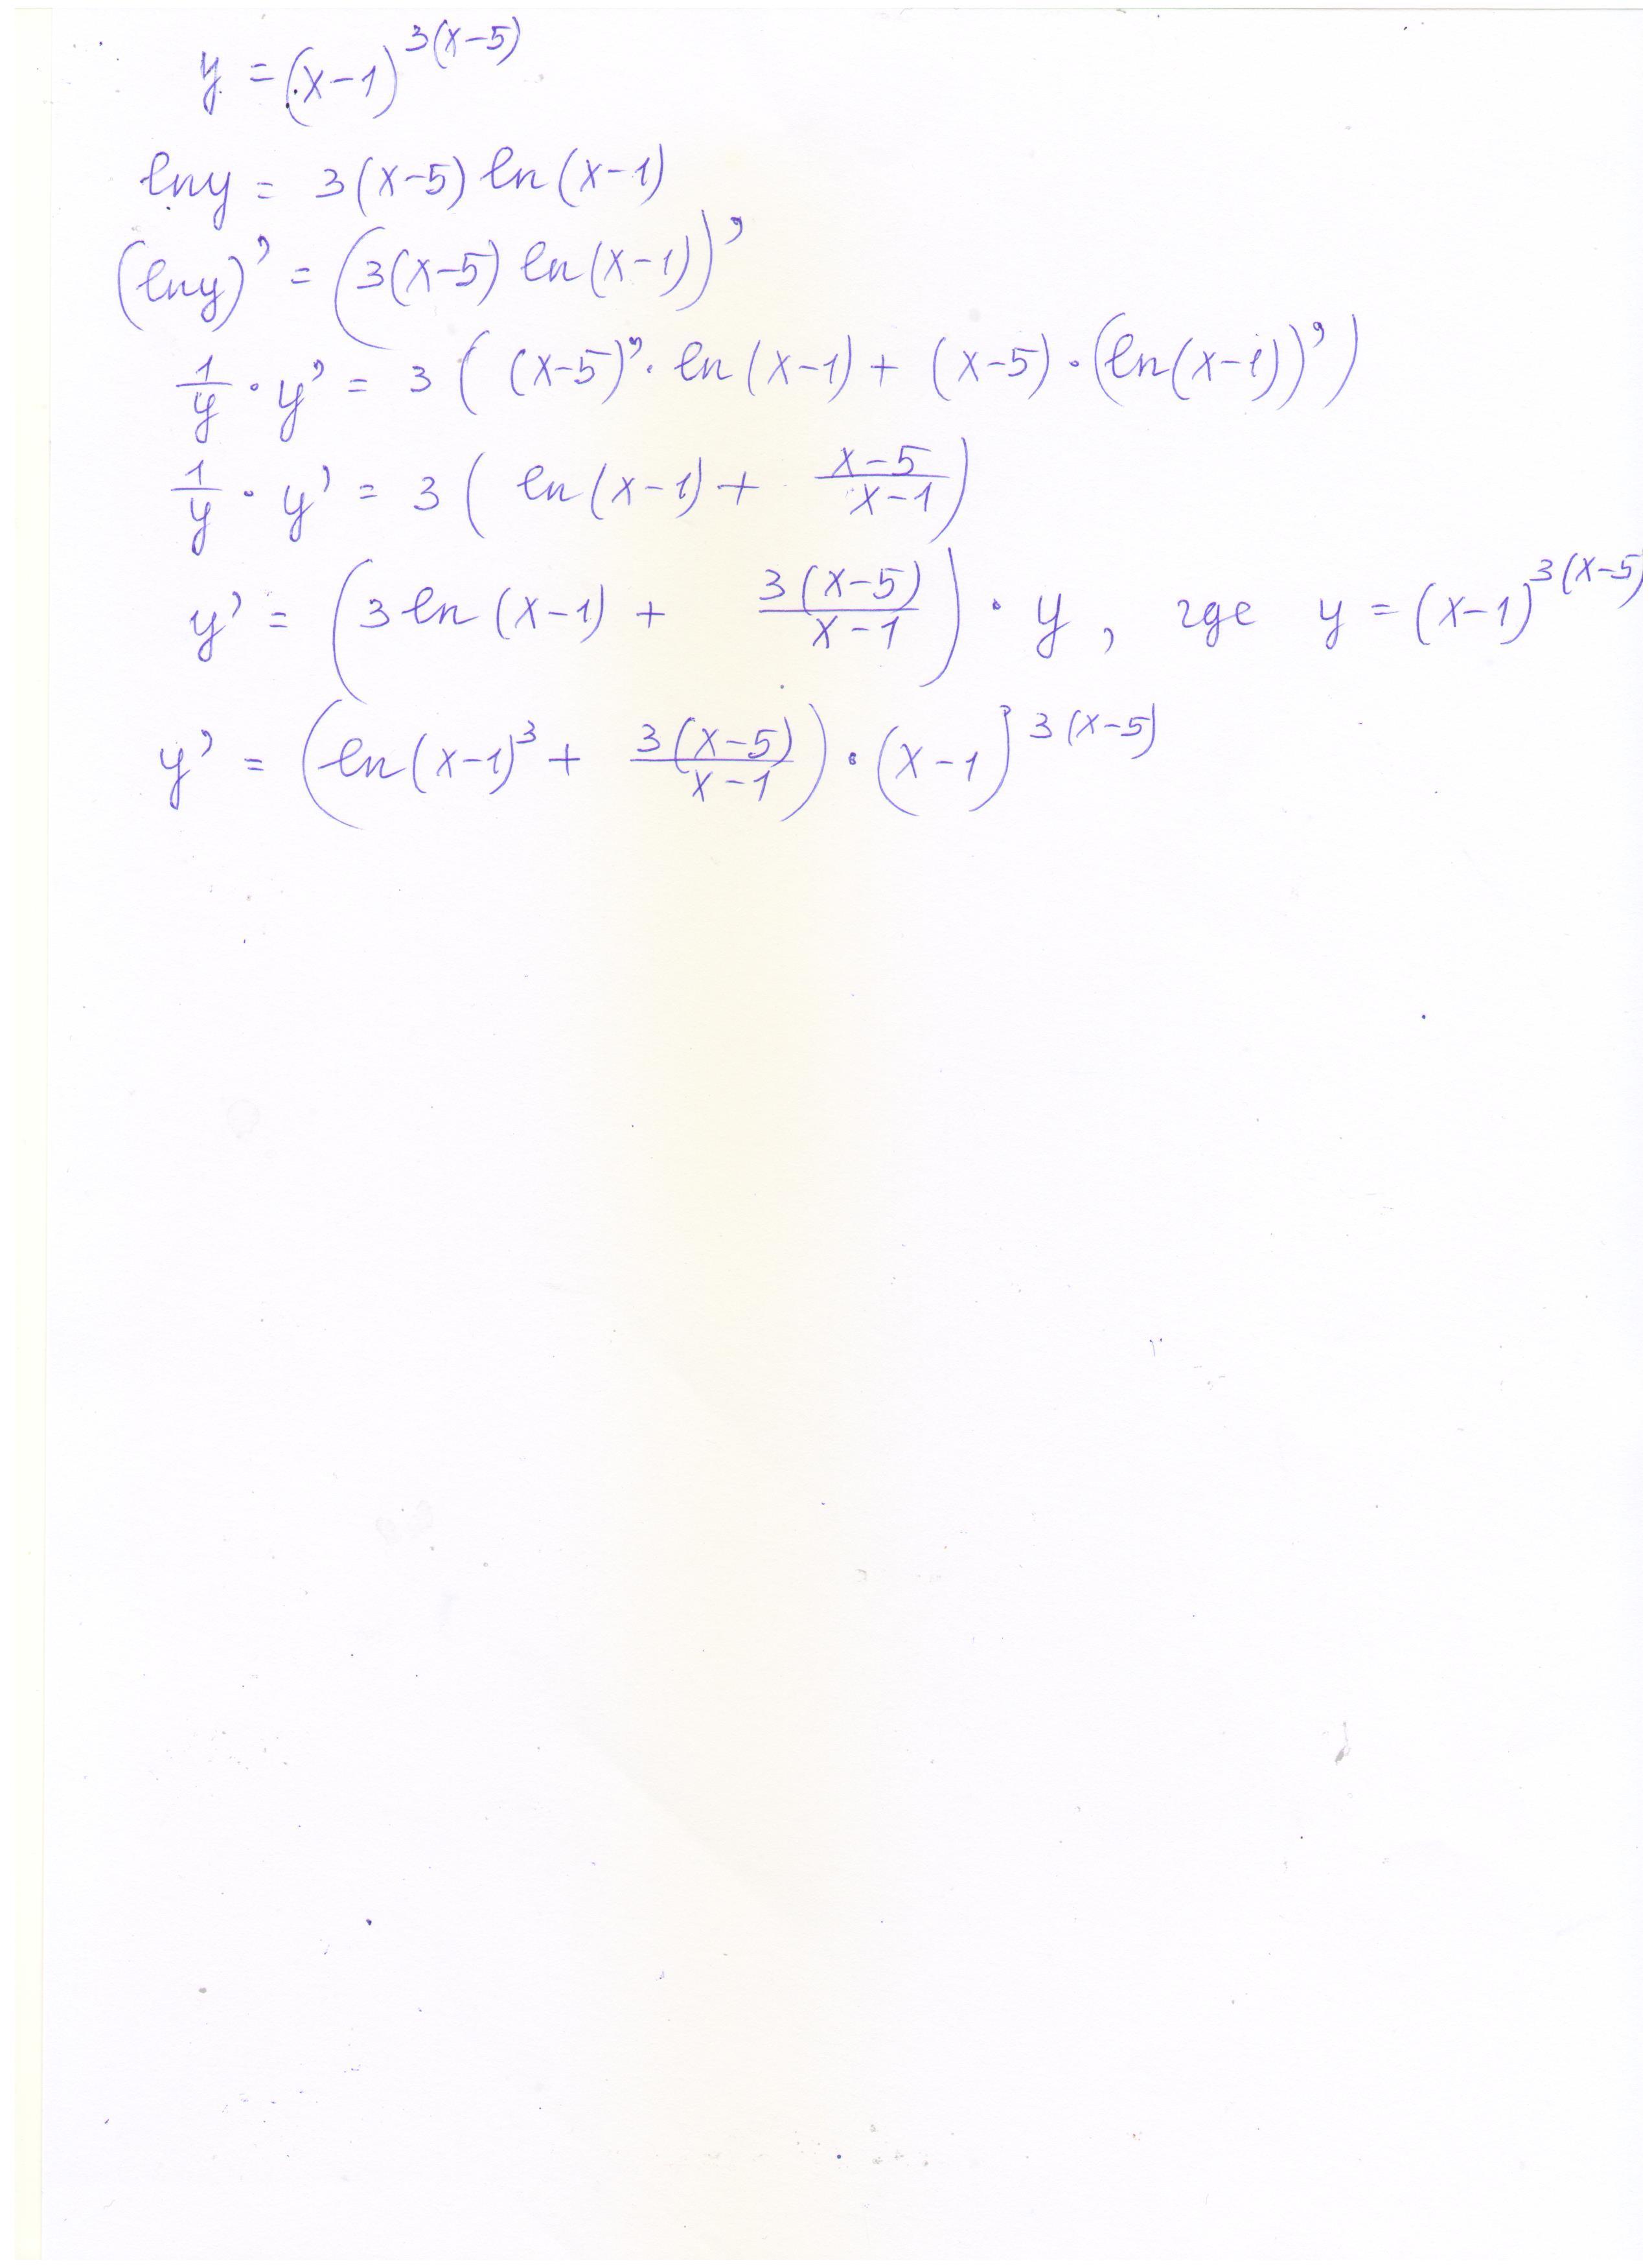 y = (x-1)^{3(x-5)}
lny = 3(x-5) ln(x-1)
(lny)' = (3(x-5) ln(x-1))'
\frac{1}{y} · y' = 3((x-5)' · ln(x-1) + (x-5) · (ln(x-1))')
\frac{1}{y} · y' = 3(ln(x-1) + \frac{x-5}{x-1})
y' = (3 ln(x-1) + \frac{3(x-5)}{x-1}) · y, где y = (x-1)^{3(x-5)}
y' = (ln(x-1)^3 + \frac{3(x-5)}{x-1}) · (x-1)^{3(x-5)}